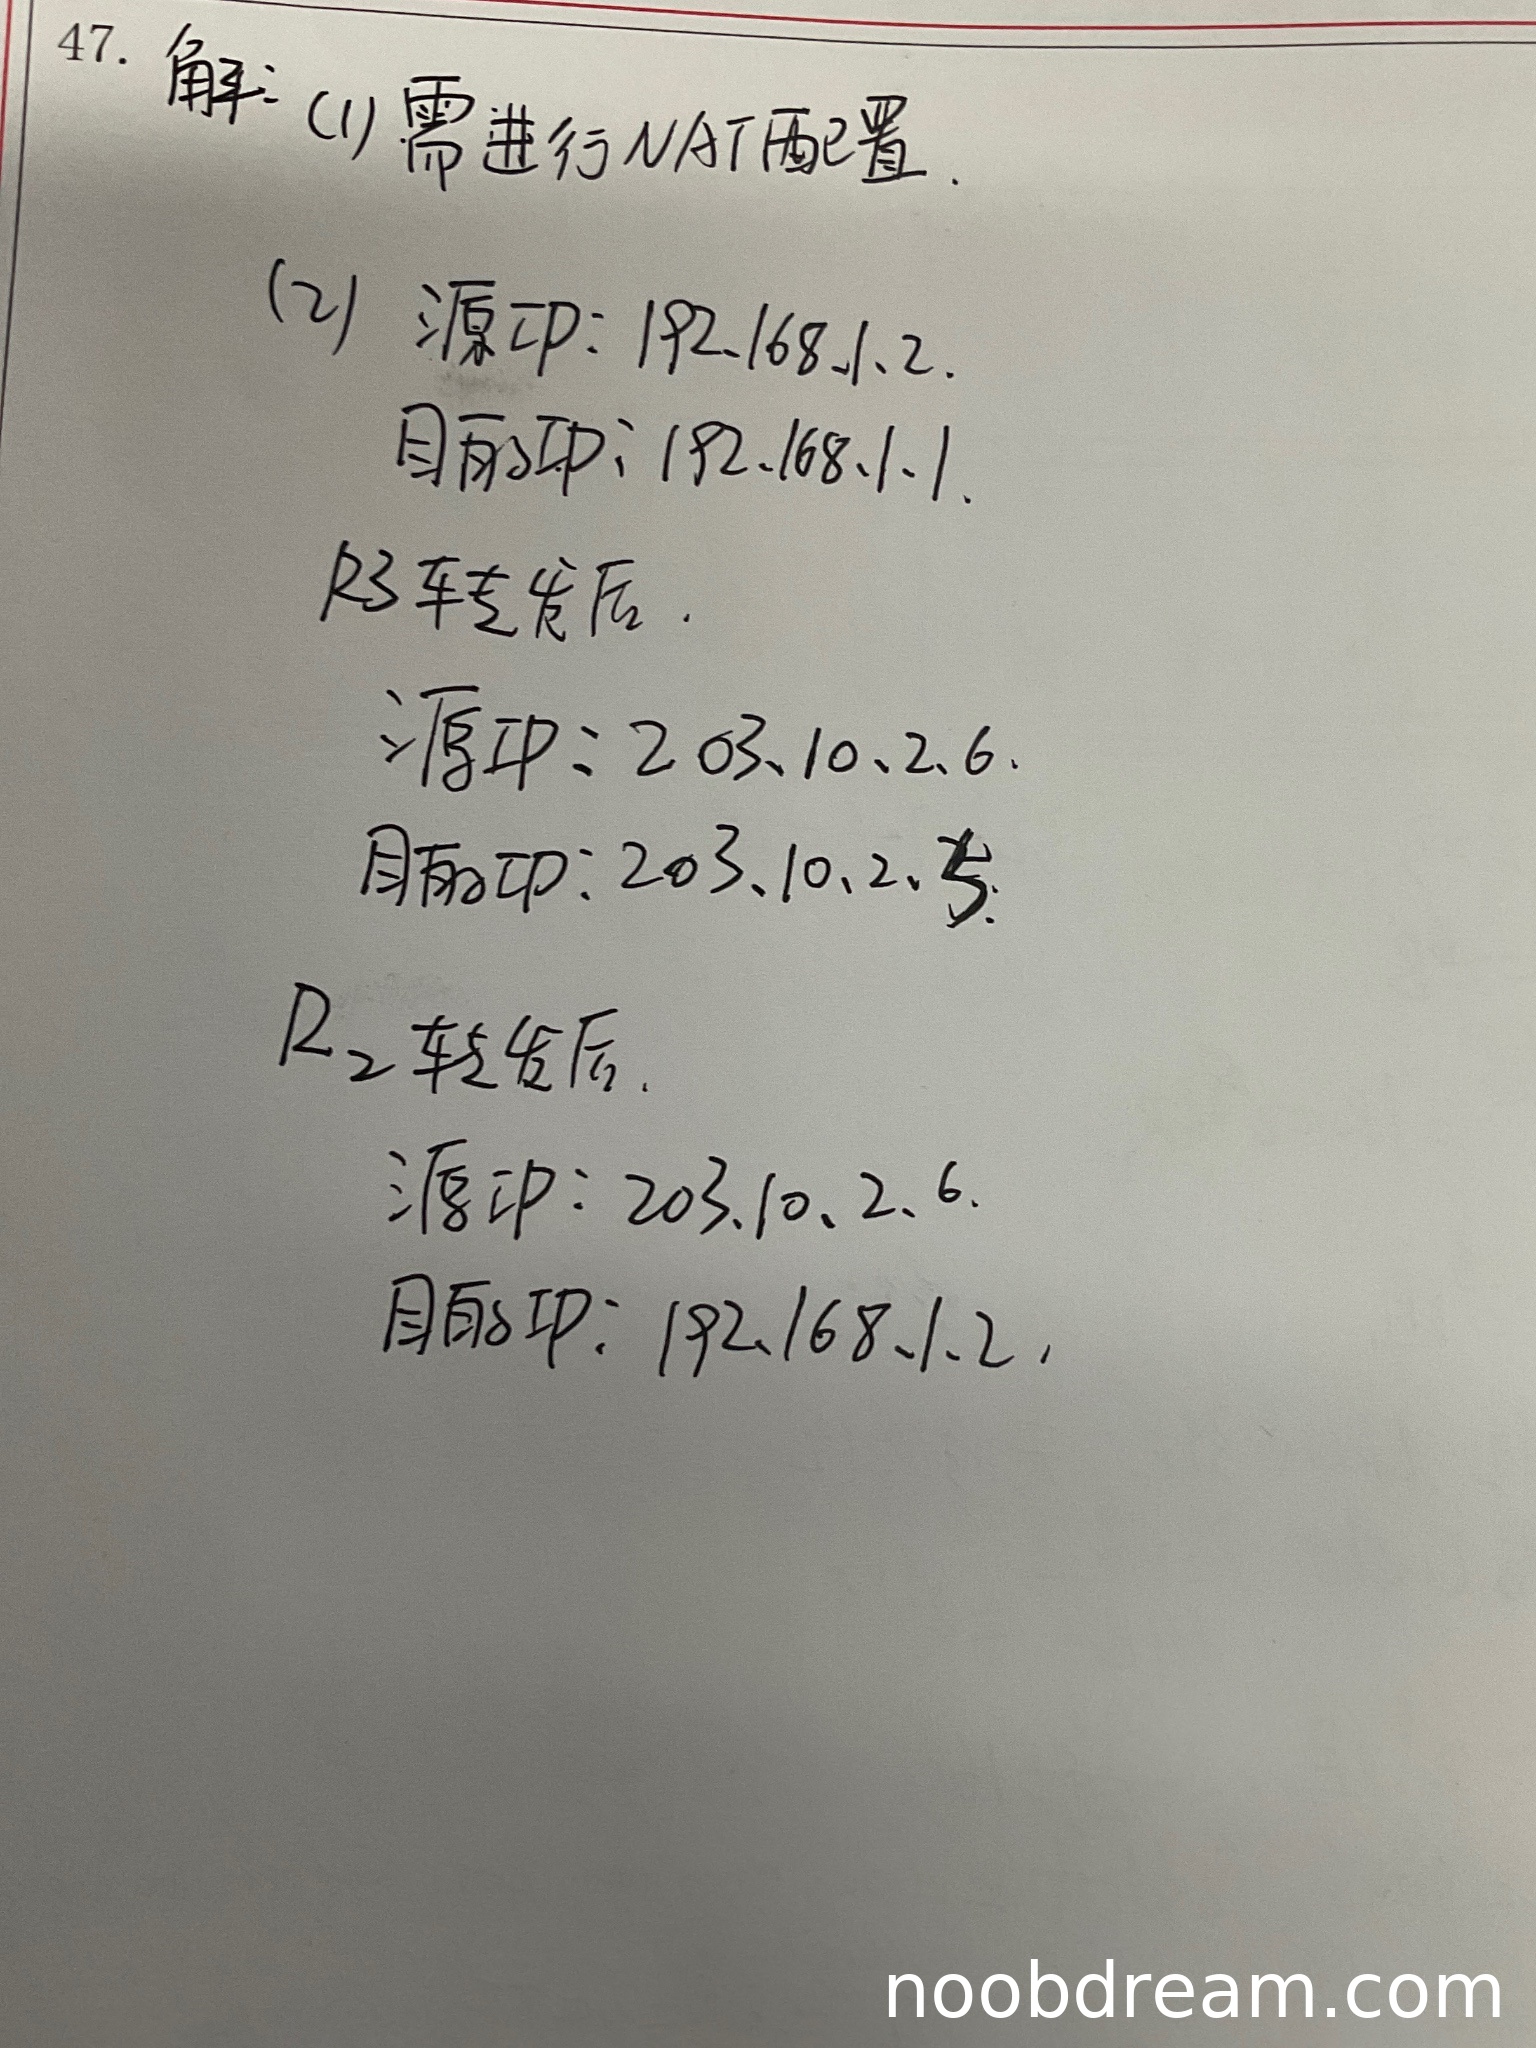 47. 解: (1) 需进行NAT配置.
(2) 源IP: 192.168.1.2.
目的IP: 192.168.1.1.
R3转发后.
源IP: 203.10.2.6.
目的IP: 203.10.2.5.
R2转发后.
源IP: 203.10.2.6.
目的IP: 192.168.1.2.
noobdream.com